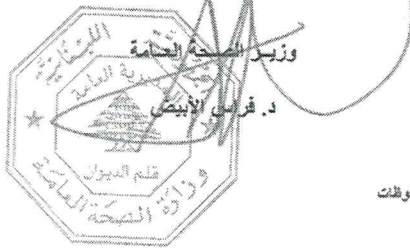 وزير الصحة العامة
د. فراس الأبيض
اللبنانية
المديرية العامة
قلم الديوان
وزارة الصحة العامة